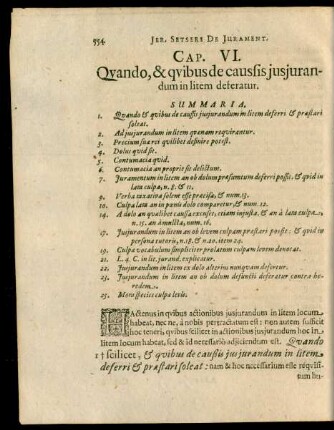 554 Jer. Setser De Jurament.
Cap. VI.
Qvando, & qvibus de caussis jusjuran-
dum in litem deferatur.
SUMMARIA.
1. Qvando & qvibus de caussis jusjurandum in litem deferri & præstari
soleat.
2. Ad jusjurandum in litem qvænam reqvirantur.
3. Precium suæ rei qvilibet definire potest.
4. Dolus qvid sit.
5. Contumacia qvid.
6. Contumacia an proprie sit delictum.
7. Juramentum in litem an ob dolum præsumtum deferri possit, & qvid in
lata culpa, n. 8. & 11.
9. Verba taxativa solent esse præcisa, & num. 13.
10. Culpa lata an in pœnis dolo comparetur, & num. 12.
14. A dolo an qvælibet caussa excuset, etiam injusta, & an à lata culpa,
n. 15. an à multa, num. 16.
17. Jusjurandum in litem an ob levem culpam præstari possit: & qvid in
persona tutoris, n. 18. & n. 20. item 24.
19. Culpæ vocabulum simpliciter prolatum culpam levem denotat.
21. L. 4. C. in lit. jurand. explicatur.
22. Jusjurandum in litem ex dolo alterius nunqvam defertur.
23. Jusjurandum in litem an ob dolum defuncti deferatur contra he-
redem.
25. Mora species culpæ levis.
HActenus in qvibus actionibus jusjurandum in litem locum
habeat, nec ne, à nobis pertractatum est: non autem sufficit
hoc teneri, qvibus scilicet in actionibus jusjurandum hoc in
litem locum habeat, sed & id necessariò adjiciendum est. Qvando
1 † scilicet, & qvibus de caussis jusjurandum in litem
deferri & præstari soleat: nam & hoc necessarium esse reqvisi-
tum hu-